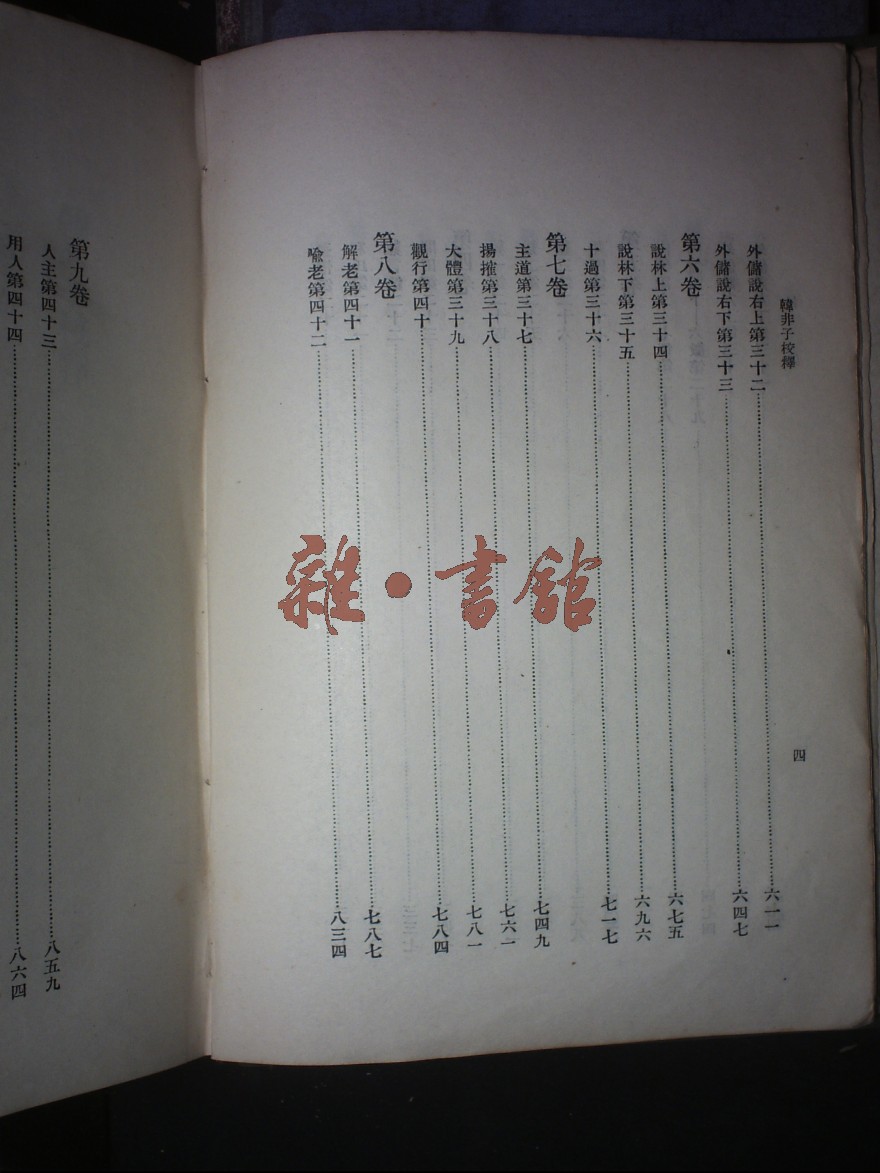 韓非子校釋
四
外儲說右上第三十二……六一一
外儲說右下第三十三……六四七
第六卷
說林上第三十四……六七五
說林下第三十五……六九六
十過第三十六……七一七
第七卷
主道第三十七……七四九
揚搉第三十八……七六一
大體第三十九……七八一
觀行第四十……七八四
第八卷
解老第四十一……七八七
喩老第四十二……八三四
第九卷
人主第四十三……八五九
用人第四十四……八六四
雜·書館